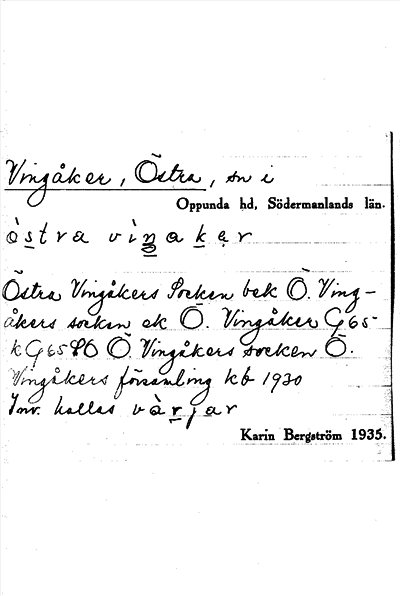 Vingåker, Östra, sn i
Oppunda hd, Södermanlands län.
òstra vìŋakẹr
Östra Vingåkers Socken bek Ö. Ving-
åkers socken ek Ö. Vingåker G65-
k G65 Ö. Vingåkers socken Ö.
Vingåkers församling kb 1930
Inv. kallas vàrjar
Karin Bergström 1935.